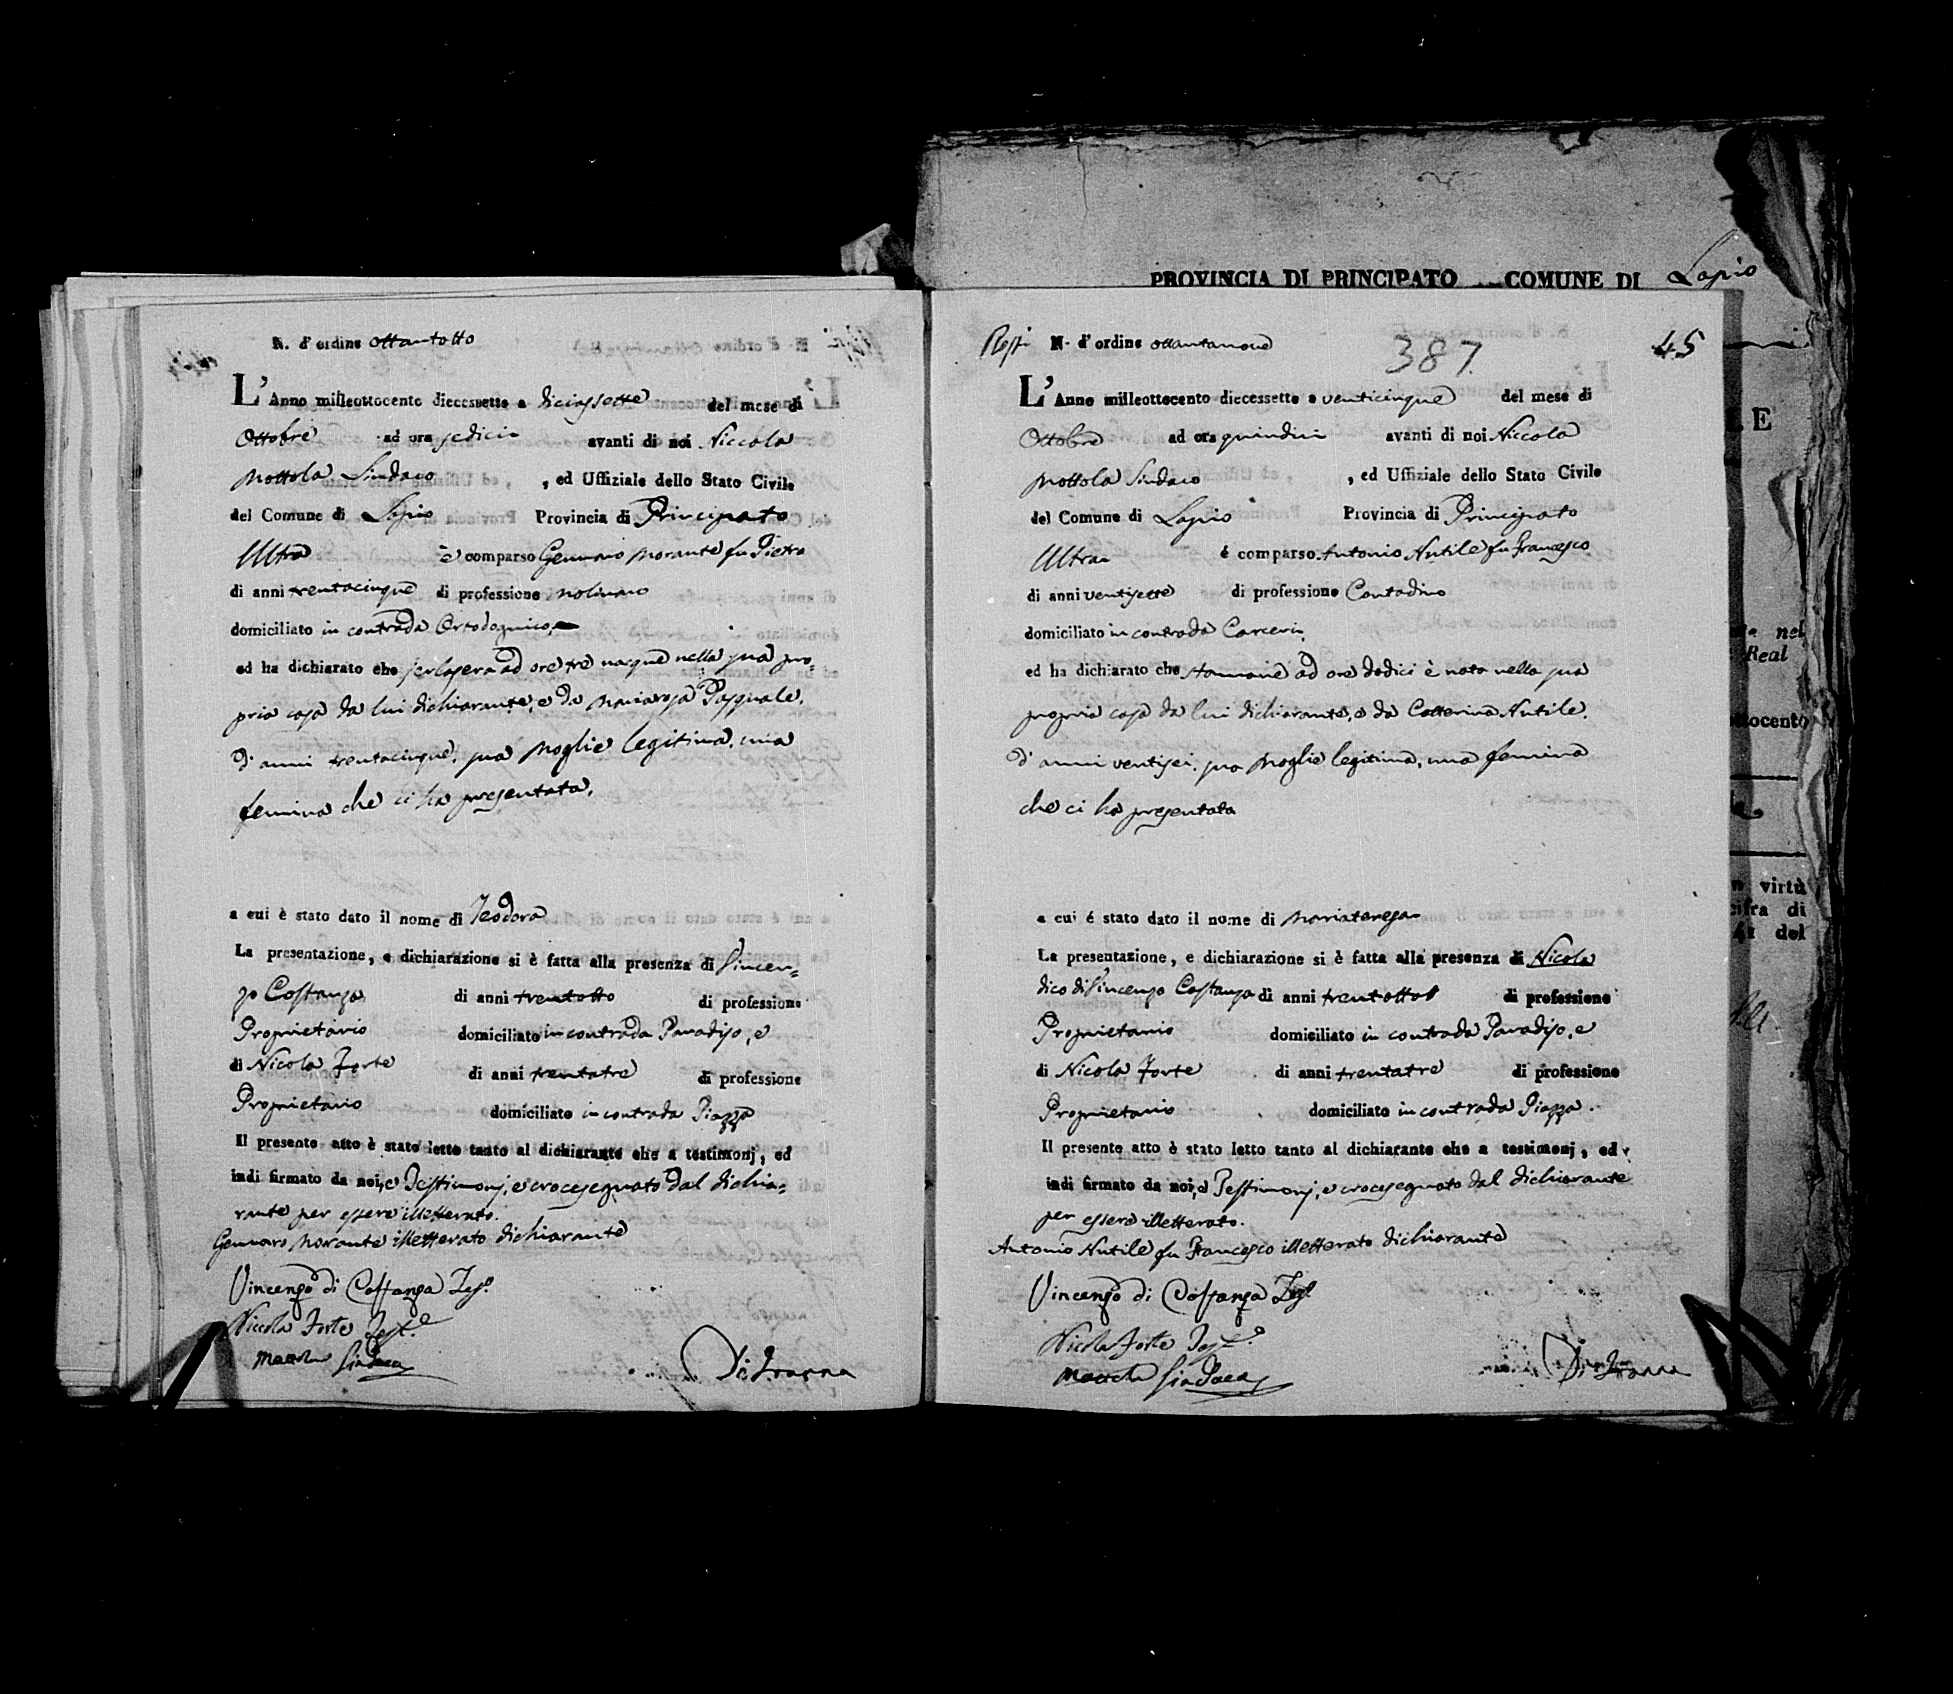 PROVINCIA DI PRINCIPATO COMUNE DI Lapio
N. d' ordine ottantotto
L' Anno milleottocento diecessette a diciassette del mese di
Ottobre ad ora sedici avanti di noi Niccola
Mottola Sindaco , ed Uffiziale dello Stato Civile
del Comune di Lapio Provincia di Principato
Ultra è comparso Gennaro Morante fu Pietro
di anni trentacinque di professione Molinaro
domiciliato in contrada
ed ha dichiarato che jerlasera ad ore tre nacque nella sua pro-
pria casa da lui dichiarante, e da Mariarosa Pasquale,
d' anni trentacinque, sua Moglie legitima, una
femina che ci ha presentata.
a cui è stato dato il nome di Teodora
La presentazione, e dichiarazione si è fatta alla presenza di Vincen-
zo Costanza di anni trentotto di professione
Proprietario domiciliato in contrada Paradiso, e
di Nicola Forte di anni trentatre di professione
Proprietario domiciliato in contrada Piazza
Il presente atto è stato letto tanto al dichiarante che a testimonj, ed
indi firmato da noi, e Testimonj, e crocesegnato dal dichia-
rante per essere illetterato.
Gennaro Morante illetterato dichiarante
Vincenzo di Costanza Tes.o
Nicola Forte Test.e
Mottola Sindaco
Di Iranna
N. d' ordine ottantanove
387.
45
L' Anno milleottocento diecessette a venticinque del mese di
Ottobre ad ora quindici avanti di noi Niccola
Mottola Sindaco , ed Uffiziale dello Stato Civile
del Comune di Lapio Provincia di Principato
Ultra è comparso Antonio Nutile fu Francesco
di anni ventisette di professione Contadino
domiciliato in contrada Carceri,
ed ha dichiarato che stammane ad ore dodici è nata nella sua
propria casa da lui dichiarante, e da Catterina Nutile,
d' anni ventisei, sua Moglie legitima, una femina
che ci ha presentata
a cui é stato dato il nome di Mariateresa
La presentazione, e dichiarazione si è fatta alla presenza di Nicola
dico di Vincenzo Costanza di anni trentotto di professione
Proprietario domiciliato in contrada Paradiso, e
di Nicola Forte di anni trentatre di professione
Proprietario domiciliato in contrada Piazza.
Il presente atto è stato letto tanto al dichiarante che a testimonj, ed
indi firmato da noi, e Testimonj, e crocesegnato dal dichiarante
per essere illetterato.
Antonio Nutile fu Francesco illetterato dichiarante
Vincenzo di Costanza Tes.o
Nicola Forte Tes.o
Mottola Sindaco
Di Iranna
LE
nel
Real
ttocento
virtù
cifra di
del